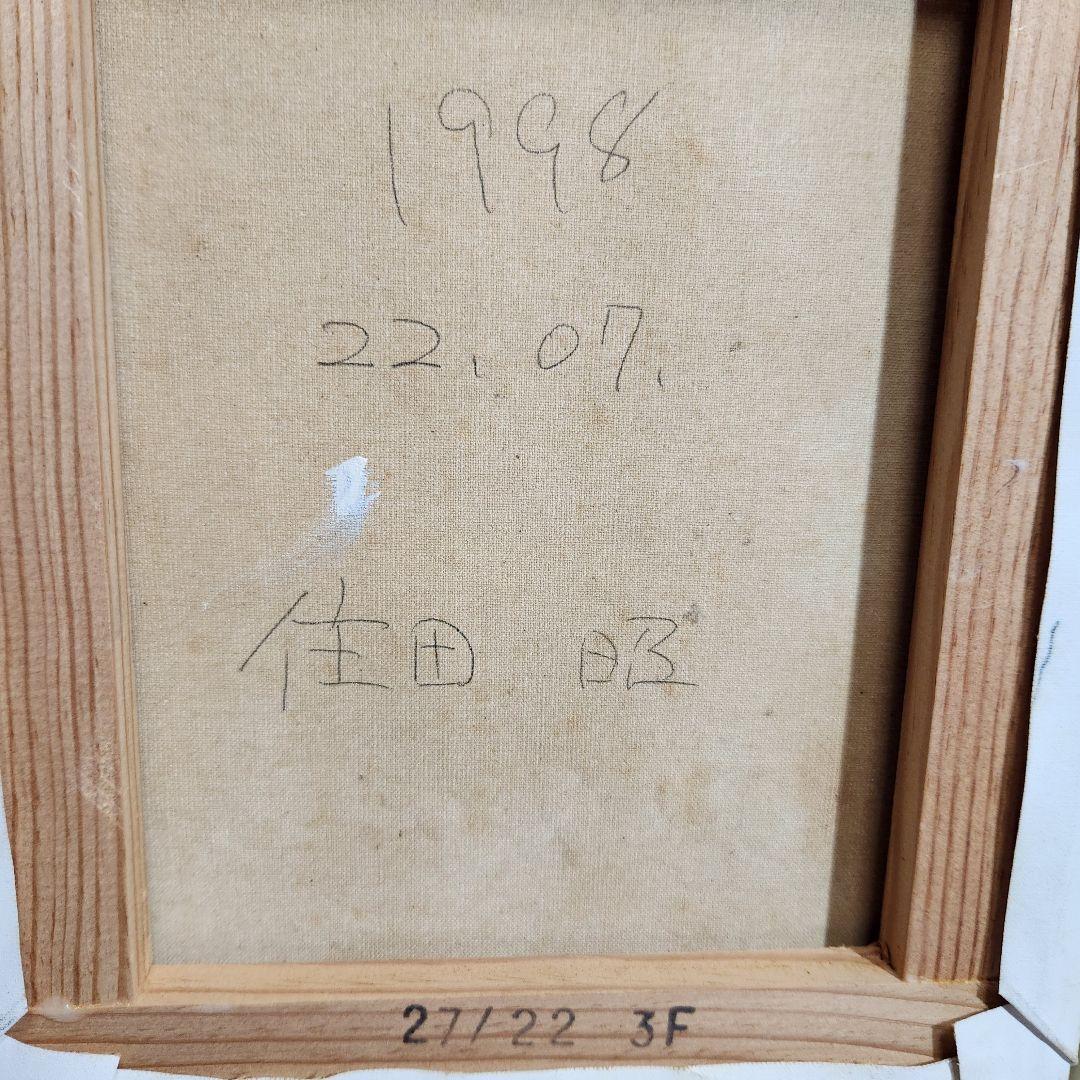 1998
22, 07,
住田 昭
27/22 3F